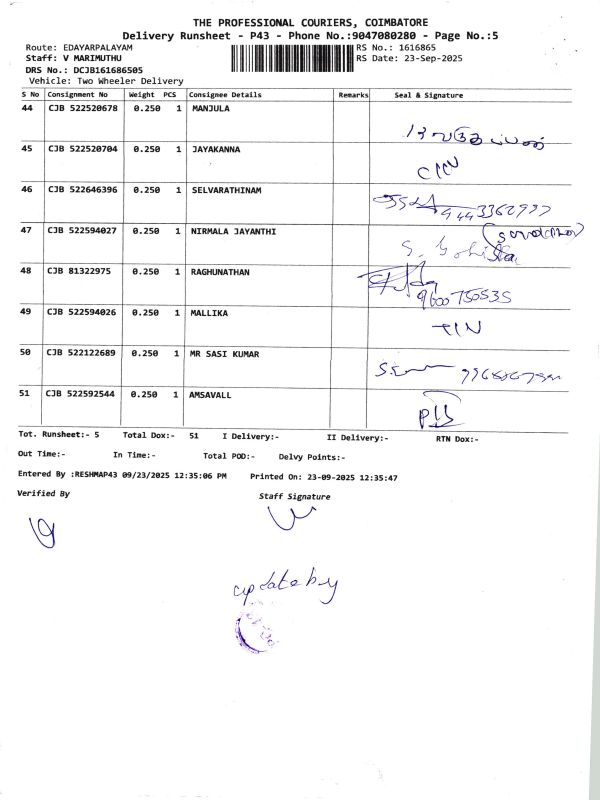 THE PROFESSIONAL COURIERS, COIMBATORE
Delivery Runsheet - P43 - Phone No.:9047080280 - Page No.:5
Route: EDAYARPALAYAM RS No.: 1616865
Staff: V MARIMUTHU RS Date: 23-Sep-2025
DRS No.: DCJB161686505
Vehicle: Two Wheeler Delivery
S No Consignment No Weight PCS Consignee Details Remarks Seal & Signature
44 CJB 522520678 0.250 1 MANJULA
45 CJB 522520704 0.250 1 JAYAKANNA
46 CJB 522646396 0.250 1 SELVARATHINAM
47 CJB 522594027 0.250 1 NIRMALA JAYANTHI
48 CJB 81322975 0.250 1 RAGHUNATHAN
9600750535
49 CJB 522594026 0.250 1 MALLIKA
50 CJB 522122689 0.250 1 MR SASI KUMAR
51 CJB 522592544 0.250 1 AMSAVALL
Tot. Runsheet:- 5 Total Dox:- 51 I Delivery:- II Delivery:- RTN Dox:-
Out Time:- In Time:- Total POD:- Delvy Points:-
Entered By :RESHMAP43 09/23/2025 12:35:06 PM Printed On: 23-09-2025 12:35:47
Verified By Staff Signature
update by